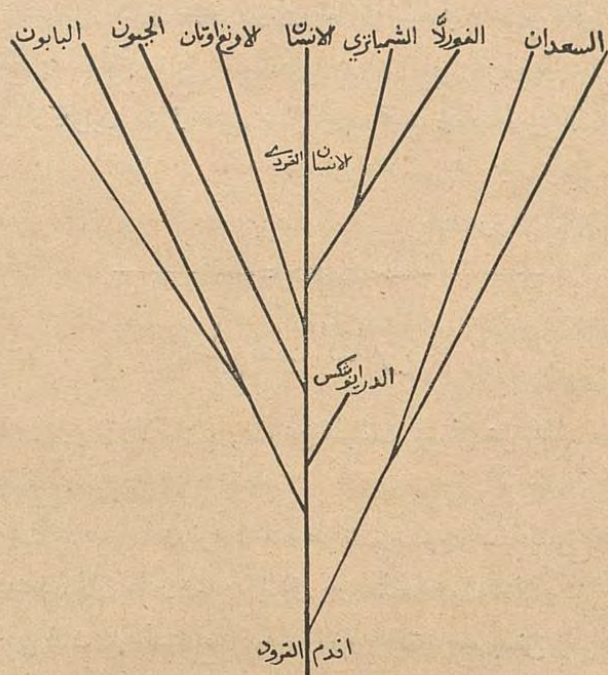 السعدان
الغورلاَّ
الشمبانزي
الانسان
الاورنغ اوتان
الجبون
البابون
الانسان القردي
الدرايوبثكس
اقدم القرود